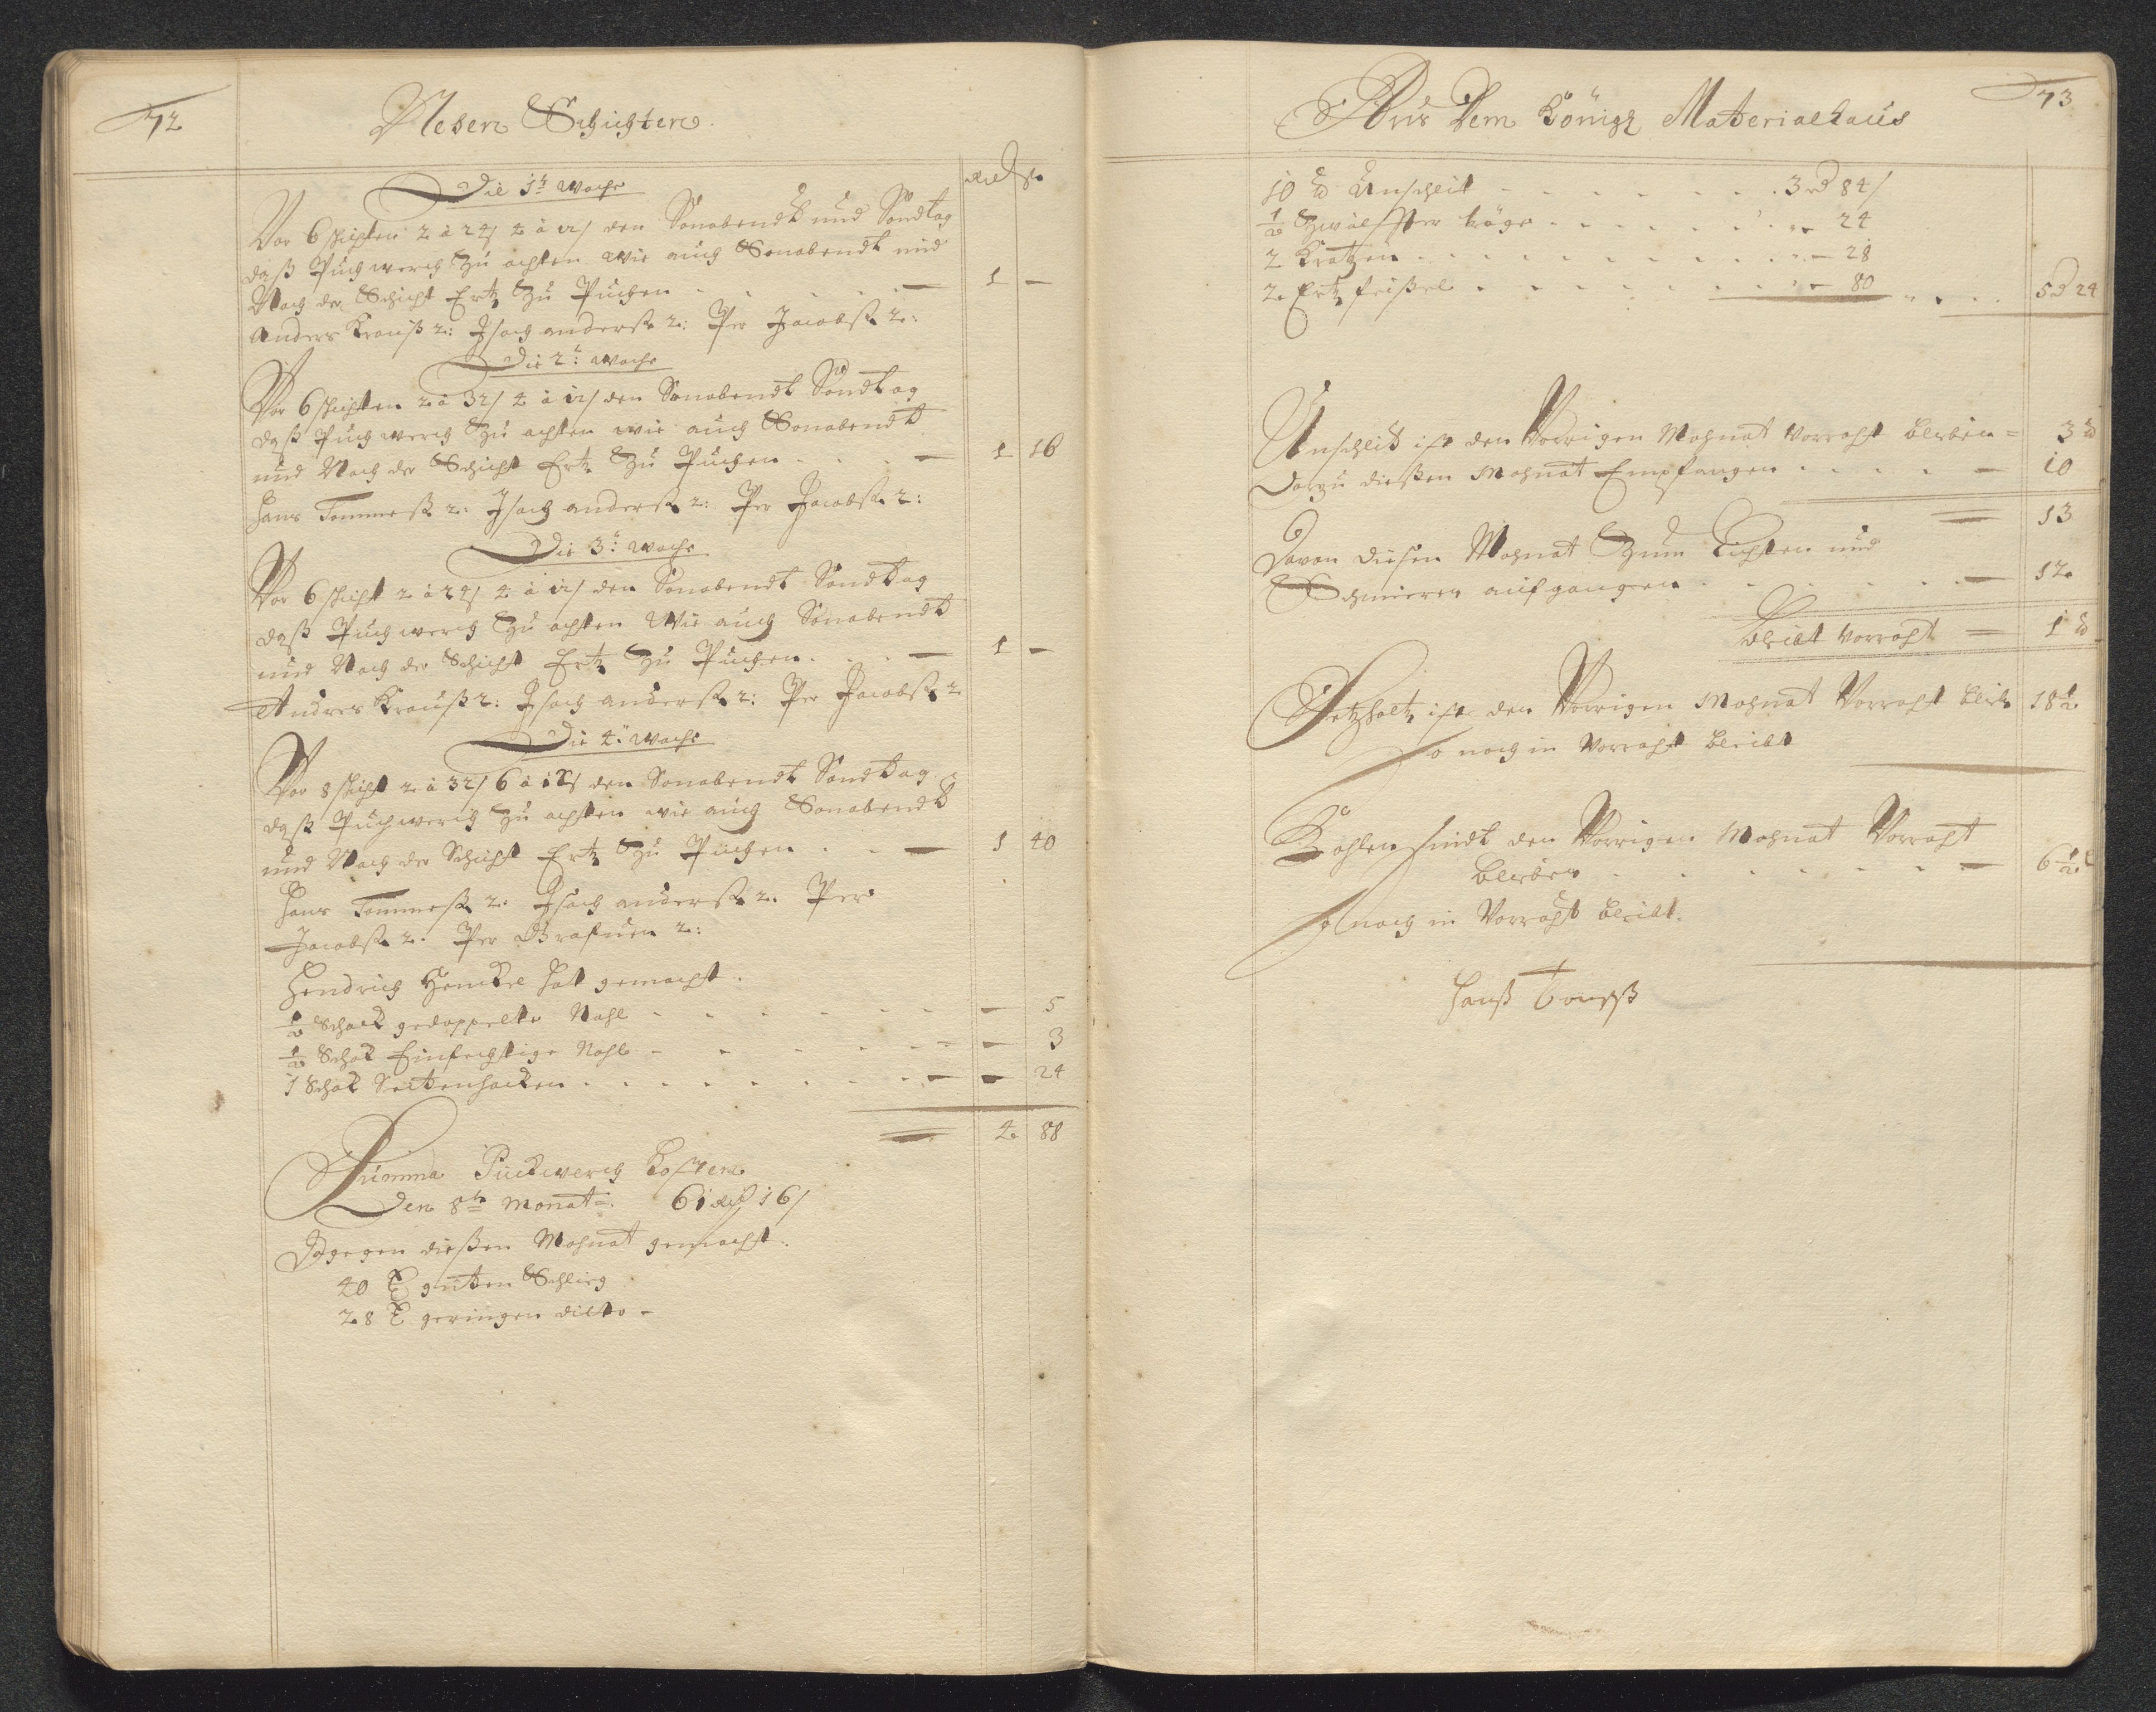 72
Neben Schichten
Die 1t Woche
Vor 6 schichten 2 à 24/ 4 à 12/ den Sonabendt und Sondtag
daß Puchwerch Zu achten wie auch Sonabendt und
Nach der Schicht Ertz Zu Puchen - - - 1 —
Anders Krauß 2: Isach anderß 2: Per Jacobß 2:
Die 2t: Woche
Vor 6 schichten 2 à 32/ 4 à 12/ den Sonabendt Sondtag
daß Puchwerch Zu achten wie auch Sonabendt
und Nach der Schicht Ertz Zu Puchen - - - 1 16
Hans Tommeß 2: Isach anderß 2: Per Jacobß 2:
Die 3t: Woche
Vor 6 schicht 2 à 24/ 4 à 12/ den Sonabendt Sondtag
daß Puchwerch Zu achten Wie auch Sonabendt
und Nach der Schicht Ertz Zu Puchen - - - 1 —
Andres Krauß 2: Isach anderß 2: Per Jacobß 2
Die 4t: Woche
Vor 8 schicht 2 à 32/ 6 à 12/ den Sonabendt Sondtag
daß Puchwerch Zu achten wie auch Sonabendt
und Nach der Schicht Ertz Zu Puchen - - 1 40
Hans Tommeß 2: Isach anderß 2: Per
Jacobß 2: Per Grafuen 2:
Hendrich Henckel hat gemacht.
1/2 Schock gedoppelte Nahl - - - — 5
1/2 Schok Einfechtige Nahl - - - — 3
1 Schok Lattenhacken - - - — 24
4 88
Summa Puckwerch Kosten
Den 8t Monat: 61 Rd 16/
Dogegen dießen Mohnat gemacht:
40 C guten Schlieg
28 C geringen ditto -
73
Aus Dem Königl Materialhaus
10 ℔ Unscheit - - - 3 rd 84/
1/2 Zwölffter - - - 24
2 Kratzen - - - 28
2 Ertz - - - 80 - - 5 d 24
Unschlit ist den Vorrigen Mohnat Vorraht bleiben = 3 ℔
Darzu dießen Mohnat Empfangen - - - 10
13
Davon diesen Mohnat Zum Lichten und
Schmieren aufgangen - - - 12
bleibt Vorraht = 1 ℔
Setzholtz ist den Vorrigen Mohnat Vorraht bleib 18
So noch in Vorraht bleibt
Kohlen sindt den Vorrigen Mohnat Vorraht
bleiben - - - 6 1/2
So noch in Vorraht bleibt.